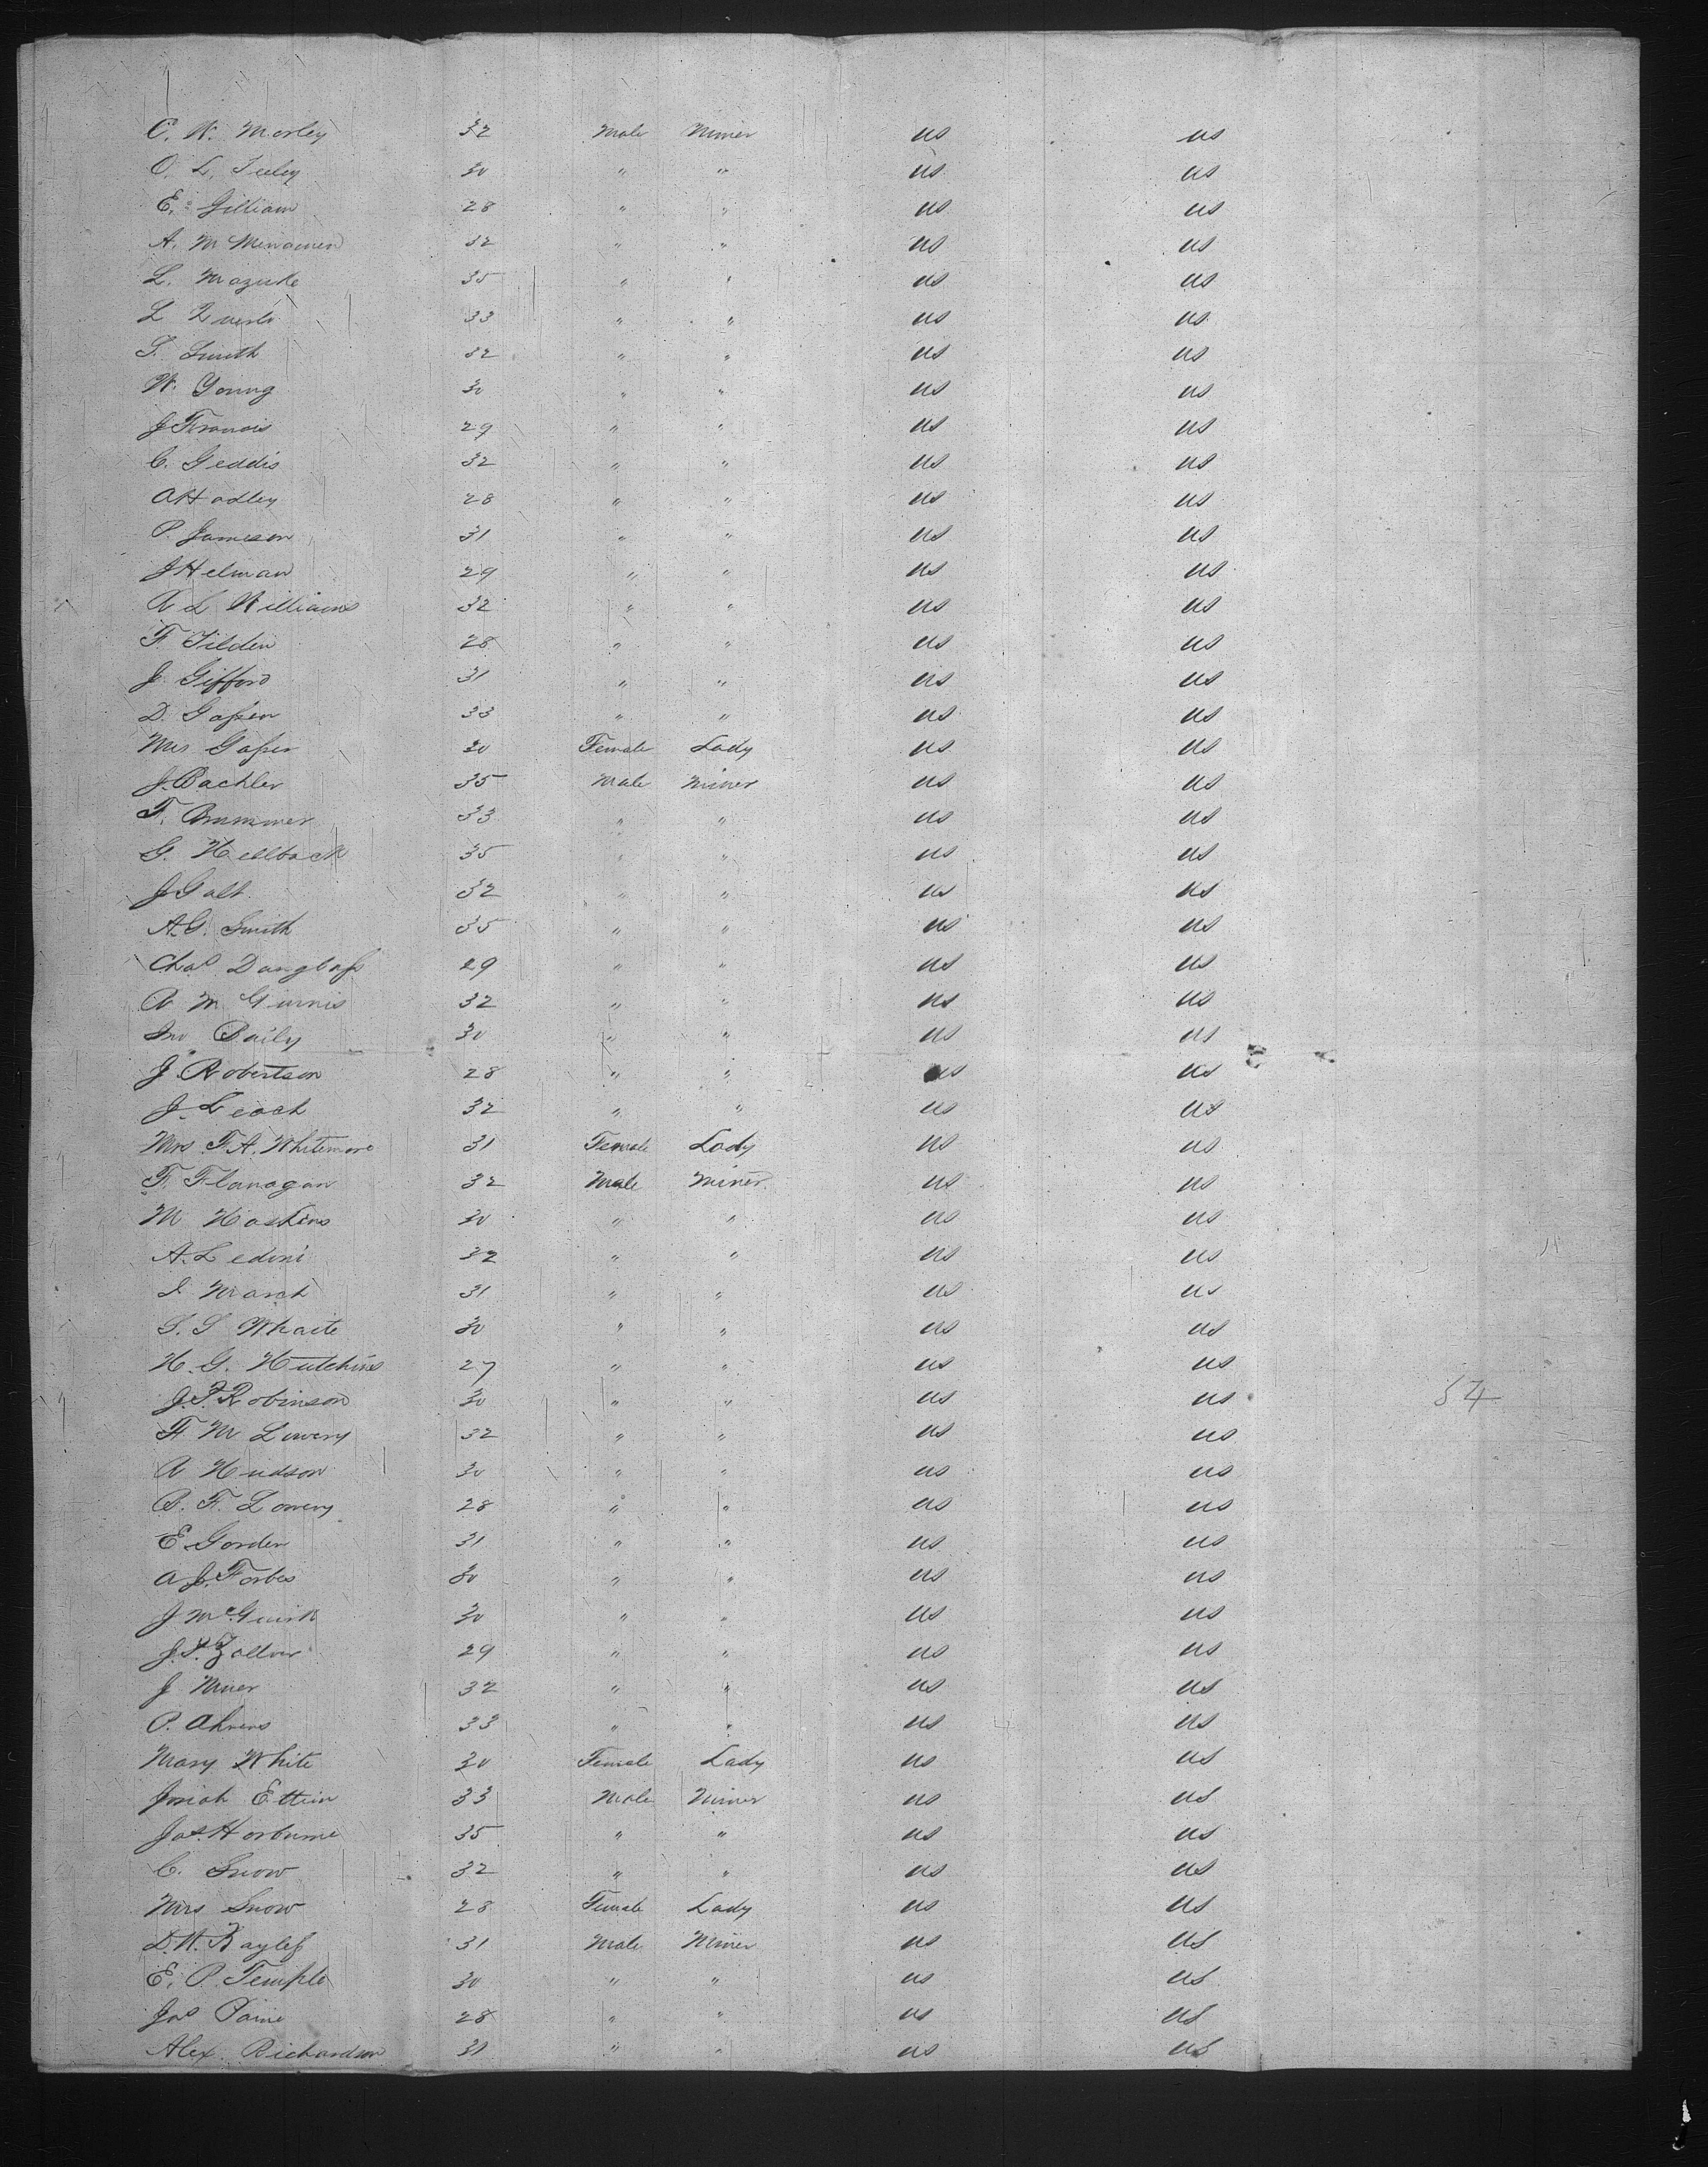 C. W. Morley 32 Male Miner us us
O. L. 30 " " us us
E. Gilliam 28 " " us us
A. M 32 " " us us
L. Mazuke 35 " " us us
L 33 " " us us
S. Smith 32 " " us us
W. Young 30 " " us us
J Francis 29 " " us us
C. Geddis 32 " " us us
A Hadley 28 " " us us
P. Jameson 31 " " us us
J Helman 29 " " us us
R L Williams 32 " " us us
F Tilden 28 " " us us
J. Gifford 31 " " us us
D. Gasper 33 " " us us
Mrs Gasper 30 Female Lady us us
J. Bachler 35 Male Miner us us
F. Brummer 33 " " us us
G. Hellback 35 " " us us
J Galt 32 " " us us
A. G. Smith 35 " " us us
Chas Dauglass 29 " " us us
A M Guinnis 32 " " us us
Jno Baily 30 " " us us
J. Robertson 28 " " us us
J. Leach 32 " " us us
Mrs F. A. Whitemore 31 Female Lady us us
F. Flanagan 32 Male Miner us us
M Haskins 30 " " us us
A. Ledini 32 " " us us
S. March 31 " " us us
S. S Whaite 30 " " us us
H. G. Hutchins 27 " " us us
J. F. Robinson 30 " " us us 54
F M Lowery 32 " " us us
A Hudson 30 " " us us
B. F. Lowery 28 " " us us
E. Gorden 31 " " us us
A J. Forbes 30 " " us us
J McGuirk 30 " " us us
J. S. Zollver 29 " " us us
J 32 " " us us
P. Ahrens 33 " " us us
Mary White 30 Female Lady us us
Josiah Ettien 33 Male Miner us us
Jas. Horburne 35 " " us us
C. Snow 32 " " us us
Mrs Snow 28 Female Lady us us
D. W. Bayless 31 Male Miner us us
E. P. Temple 30 " " us us
Jas Paine 28 " " us us
Alex. Richardson 31 " " us us